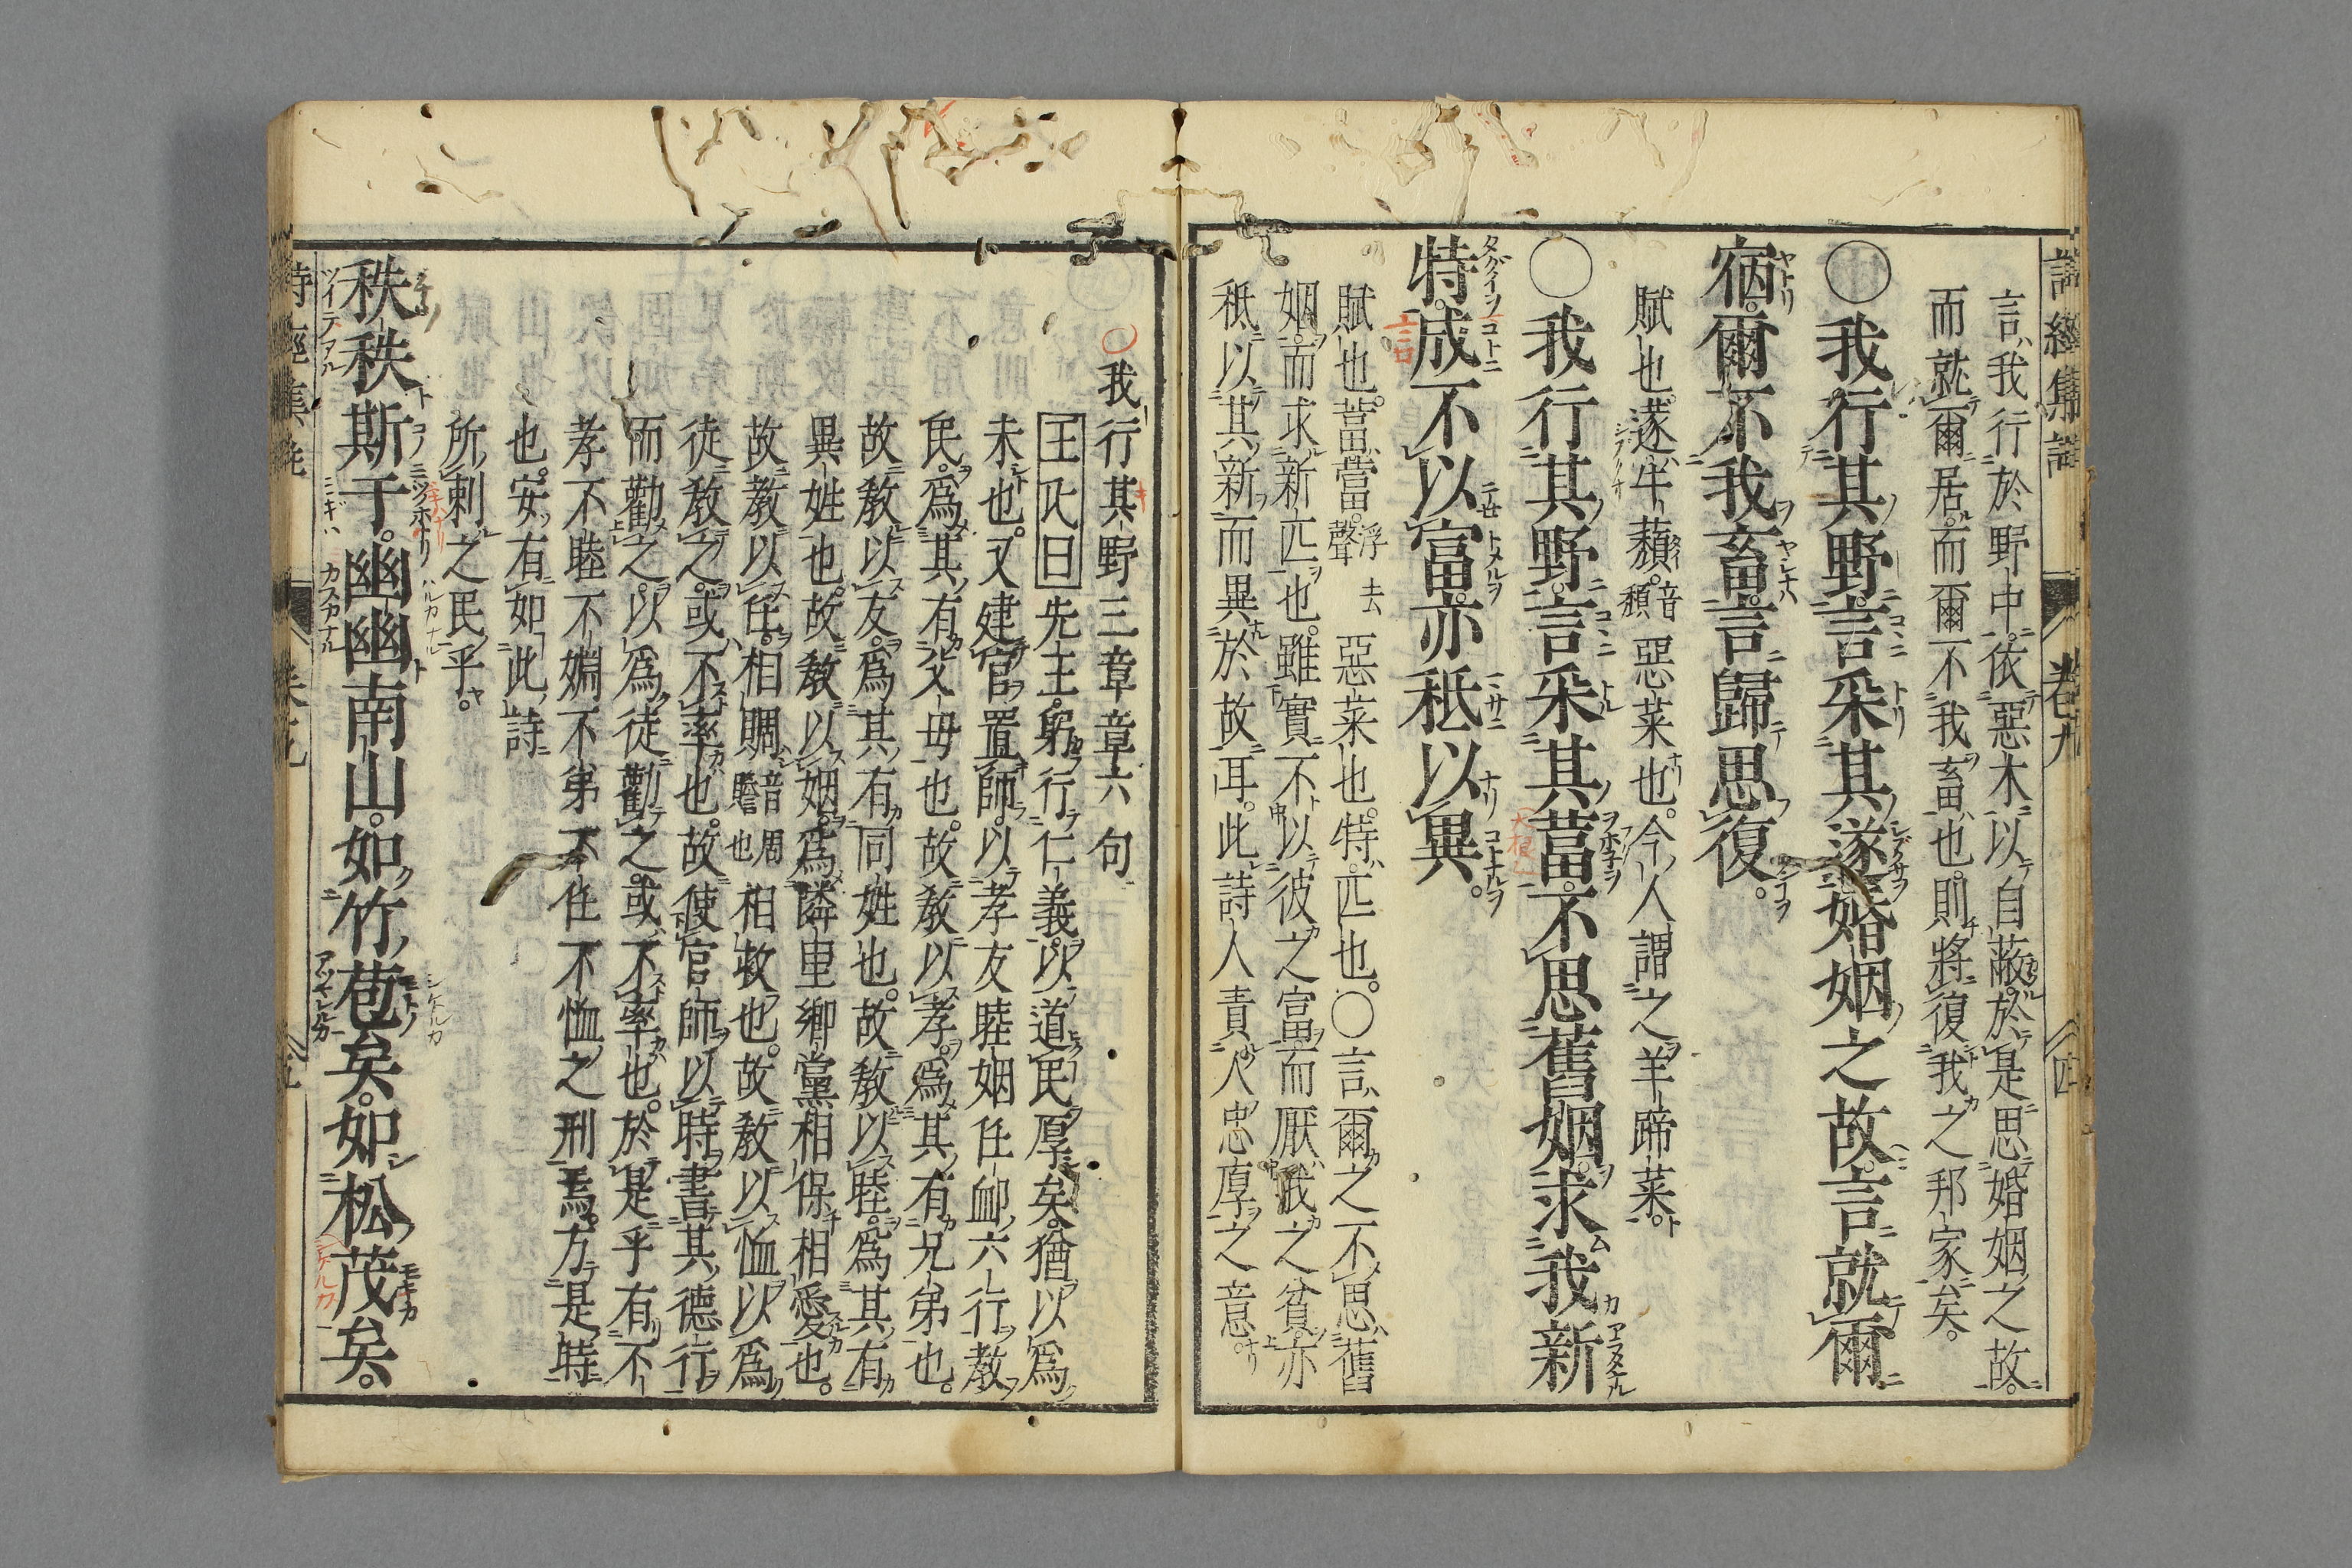 詩經集註 卷九 四
言、我行於野中。依惡木以自蔽。於是思婚姻之故。
而就爾居。而爾不我畜也。則將復我之邦家矣。
○我行其野。言采其蓫。婚姻之故。言就爾
宿。爾不我畜。言歸思復。
賦也。蓫、牛蘈。音頹惡菜也。今人謂之羊蹄菜。
○我行其野。言采其葍。不思舊姻。求我新
特。成不以富。亦秖以異。
賦也。葍、䔰。浮去聲惡菜也。特、匹也。○言、爾之不思舊
姻。而求新匹也。雖實不以彼之富。而厭我之貧。亦
秖以其新而異於故耳。此詩人責人忠厚之意。
○我行其野三章章六句
王氏曰先王躬行仁義。以道民厚矣。猶以爲
未也。又建官置師。以孝友睦姻任䘏六行教
民。爲其有父母也。故教以孝。爲其有兄弟也。
故教以友。爲其有同姓也。故教以睦。爲其有
異姓也。故教以姻。爲隣里鄉黨相保相愛也。
故教以任。相賙音周贍也相救也。故教以恤。以爲
徒教之。或不率也。故使官師以時書其德行
而勸之。以爲徒勸之。或不率也。於是乎有不
孝不睦不婣不弟不任不恤之刑焉。方是時
也。安有如此詩
所刺之民乎。
秩秩斯干。幽幽南山。如竹苞矣。如松茂矣。